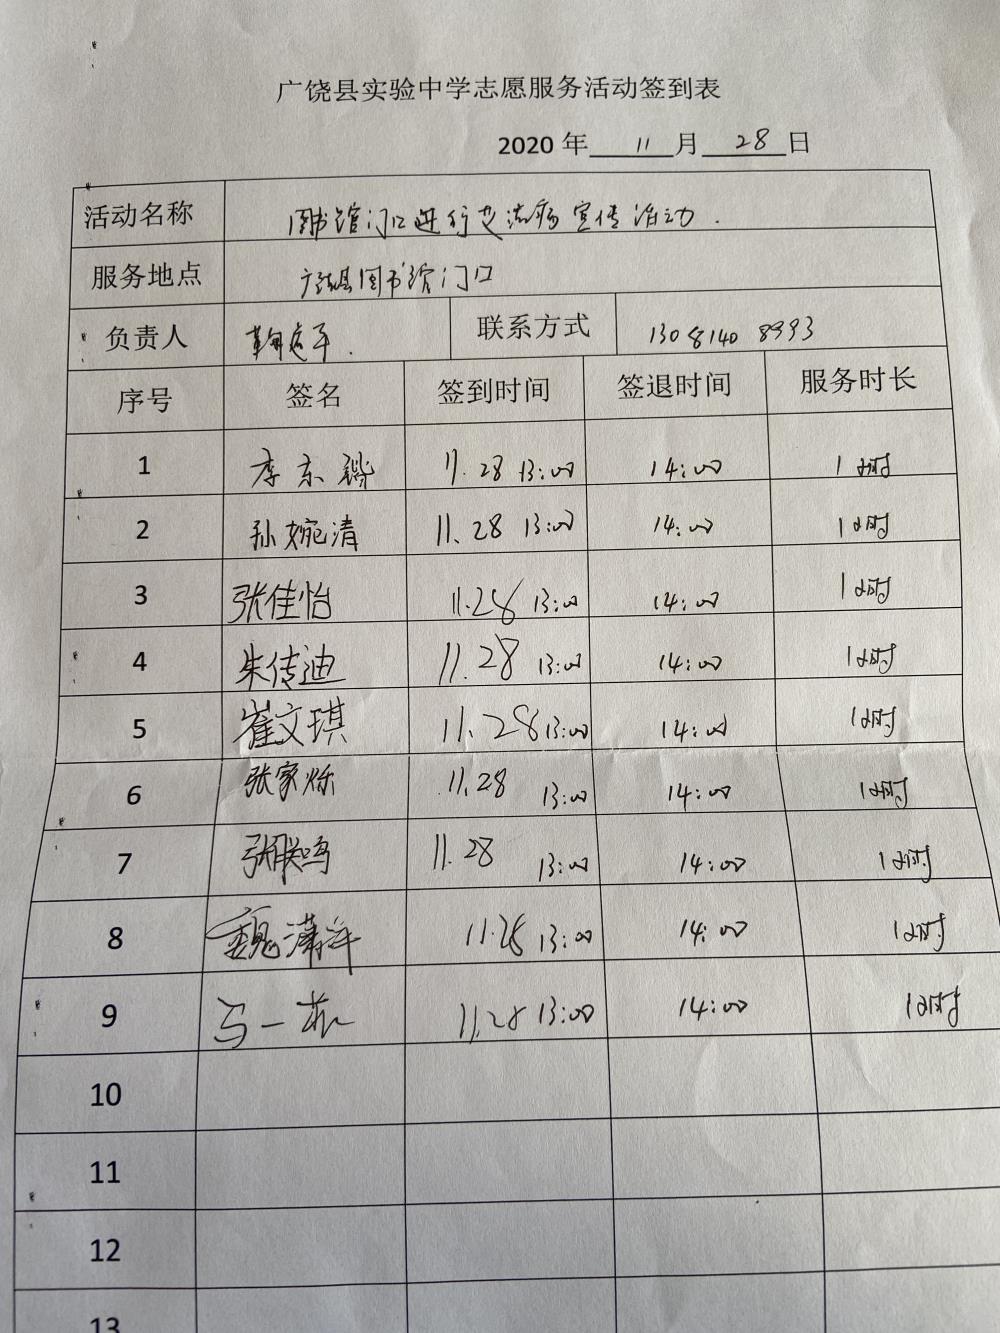 广饶县实验中学志愿服务活动签到表
2020 年 11 月 28 日
活动名称 图书馆门口进行艾滋病宣传活动.
服务地点 广饶县图书馆门口
负责人 联系方式 13081408993
序号 签名 签到时间 签退时间 服务时长
1 李东 11.28 13:00 14:00 1小时
2 孙婉清 11.28 13:00 14:00 1小时
3 张佳怡 11.28 13:00 14:00 1小时
4 朱传迪 11.28 13:00 14:00 1小时
5 崔文琪 11.28 13:00 14:00 1小时
6 张家烁 11.28 13:00 14:00 1小时
7 11.28 13:00 14:00 1小时
8 魏潇洋 11.28 13:00 14:00 1小时
9 马一 11.28 13:00 14:00 1小时
10
11
12
13